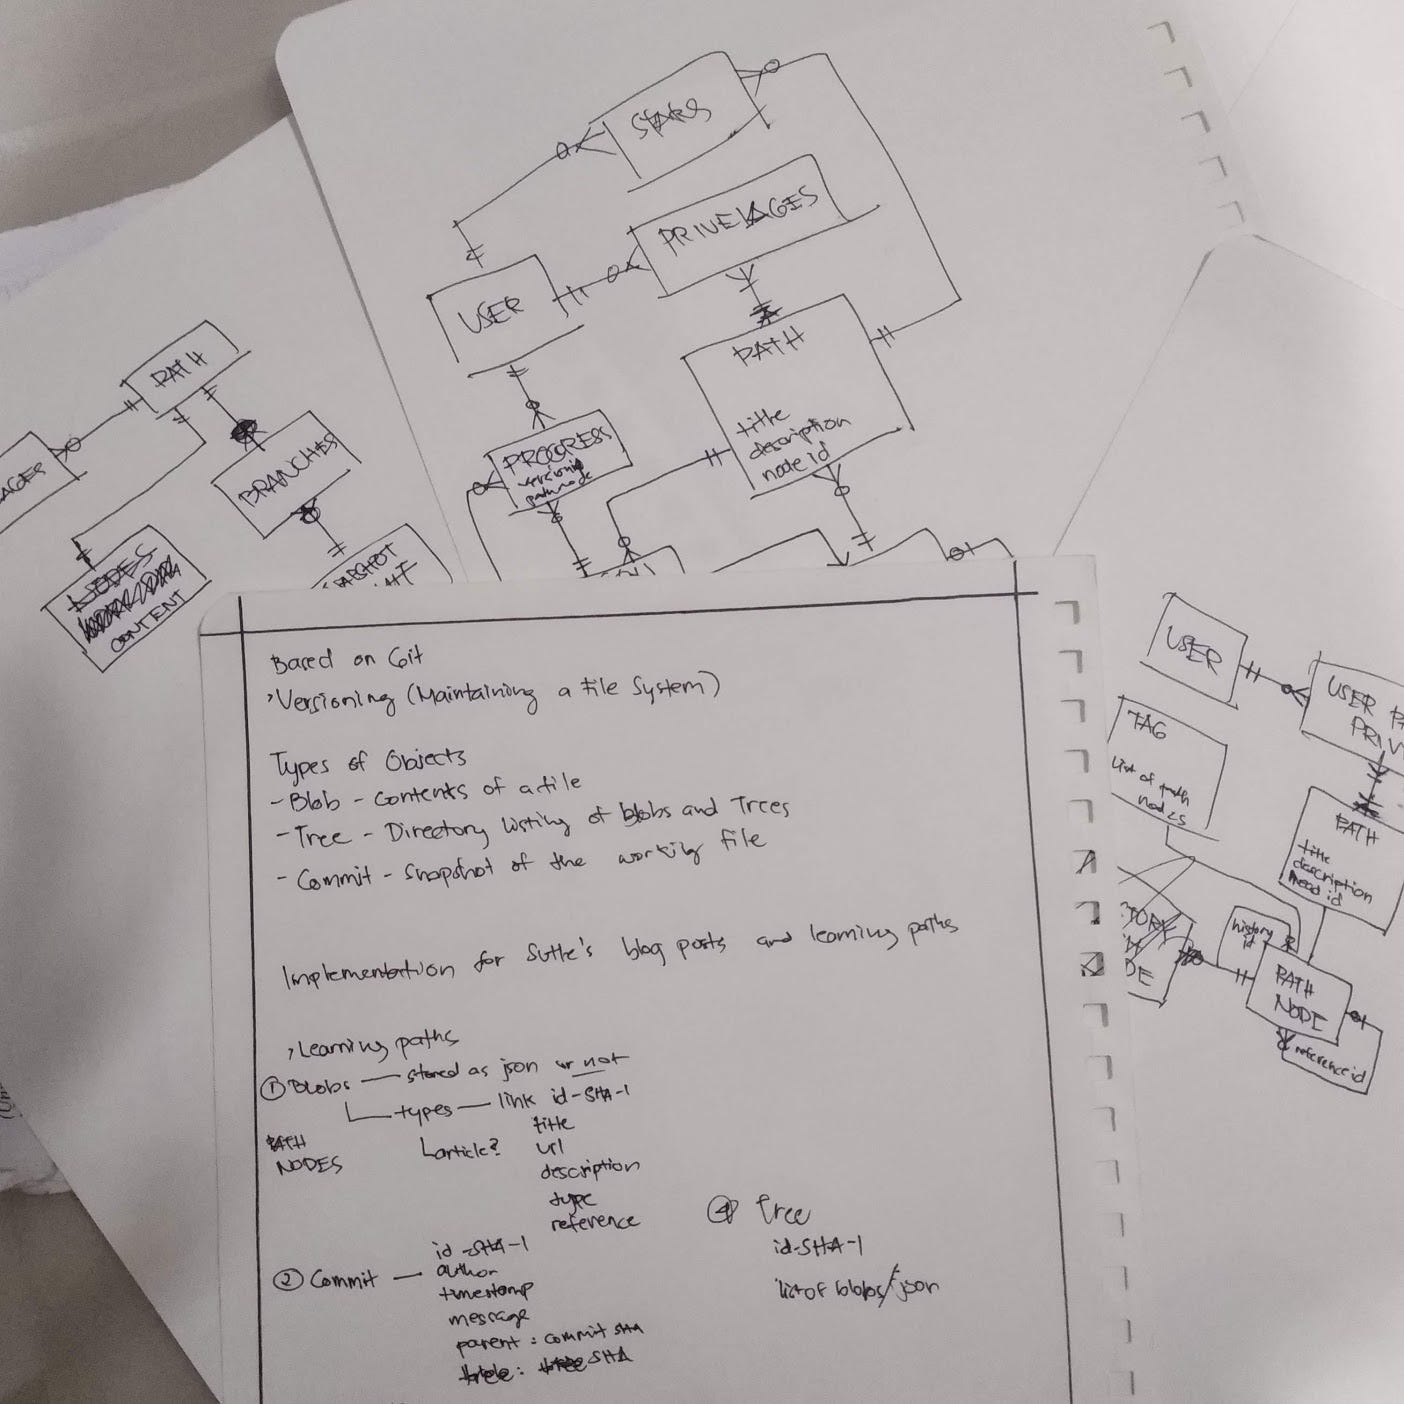 STARS
PRIVELAGES
USER
PATH
title
description
node id
PROGRESS
versioning
pathnode
PATH
BRANCHES
NODES
CONTENT
Based on Git
> Versioning (Maintaining a File System)
Types of Objects
- Blob - Contents of a file
- Tree - Directory listing of blobs and Trees
- Commit - Snapshot of the working file
Implementation for Sutle's blog posts and learning paths
> Learning paths
① Blobs — stored as json or not
types — link id-SHA-1
title
article? url
description
type
reference
PATH
NODES
② Commit — id-SHA-1
author
timestamp
message
parent : commit SHA
tree: tree SHA
④ Tree
id-SHA-1
list of blobs/json
USER
USER PA
PRIV
TAG
List of path
nodes
PATH
title
description
head id
history
id
PATH
NODE
reference id